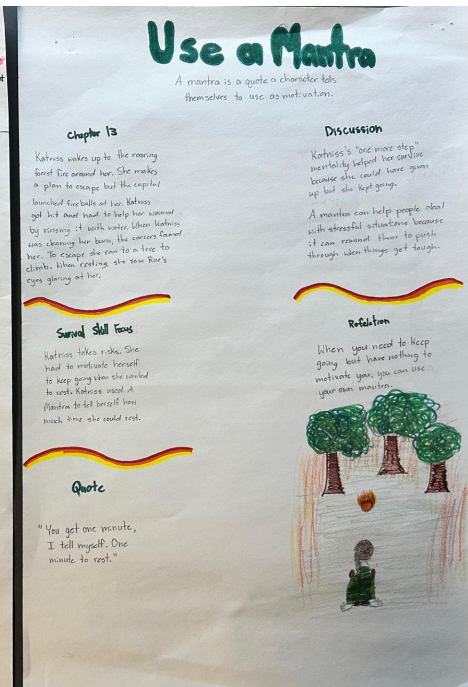 Use a Mantra
A mantra is a quote a character tells
themselves to use as motivation.
Chapter 13
Katniss wakes up to the roaring
forest fire around her. She makes
a plan to escape but the capitol
launched fireballs at her. Katniss
got hit and had to help her wounod
by rinsing it with water. When Katniss
was cleaning her burn, the careers found
her. To escape she ran to a tree to
climb. When resting, she saw Rue's
eyes glaring at her.
Survival Skill Focus
Katniss takes risks. She
had to motivate herself
to keep going when she wanted
to rest. Katniss used A
Mantra to tell herself how
much time she could rest.
Quote
"You get one minute,
I tell myself. One
minute to rest."
Discussion
Katniss's "one more step"
mentality helped her survive
because she could have given
up but she kept going.
A mantra can help people deal
with stressful situations because
it can remind them to push
through when things get tough.
Refelction
When you need to keep
going but have nothing to
motivate you, you can use
your own mantra.